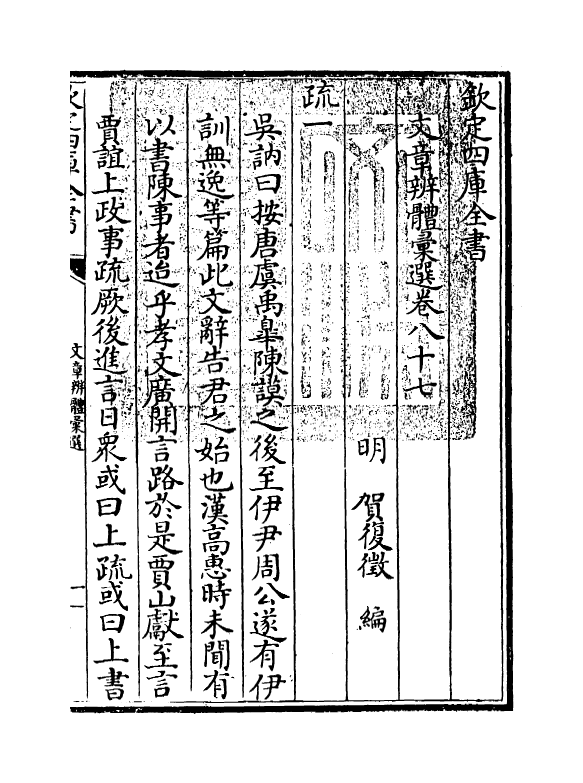 欽定四庫全書
文章辨體彙選卷八十七
明　賀復徵　編
疏一
吳訥曰按唐虞禹臯陳謨之後至伊尹周公遂有伊
訓無逸等篇此文辭告君之始也漢高惠時未聞有
以書陳事者迨乎孝文廣開言路於是賈山獻至言
賈誼上政事疏厥後進言日衆或曰上疏或曰上書
欽定四庫全書
文章辨體彙選
一